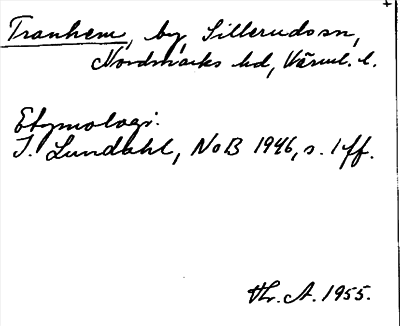 Tranhem, by, Sillerudssn,
Nordmarks hd, Värml. l.
Etymologi:
I. Lundahl, NoB 1946, s. 1 ff.
Hr. A. 1955.